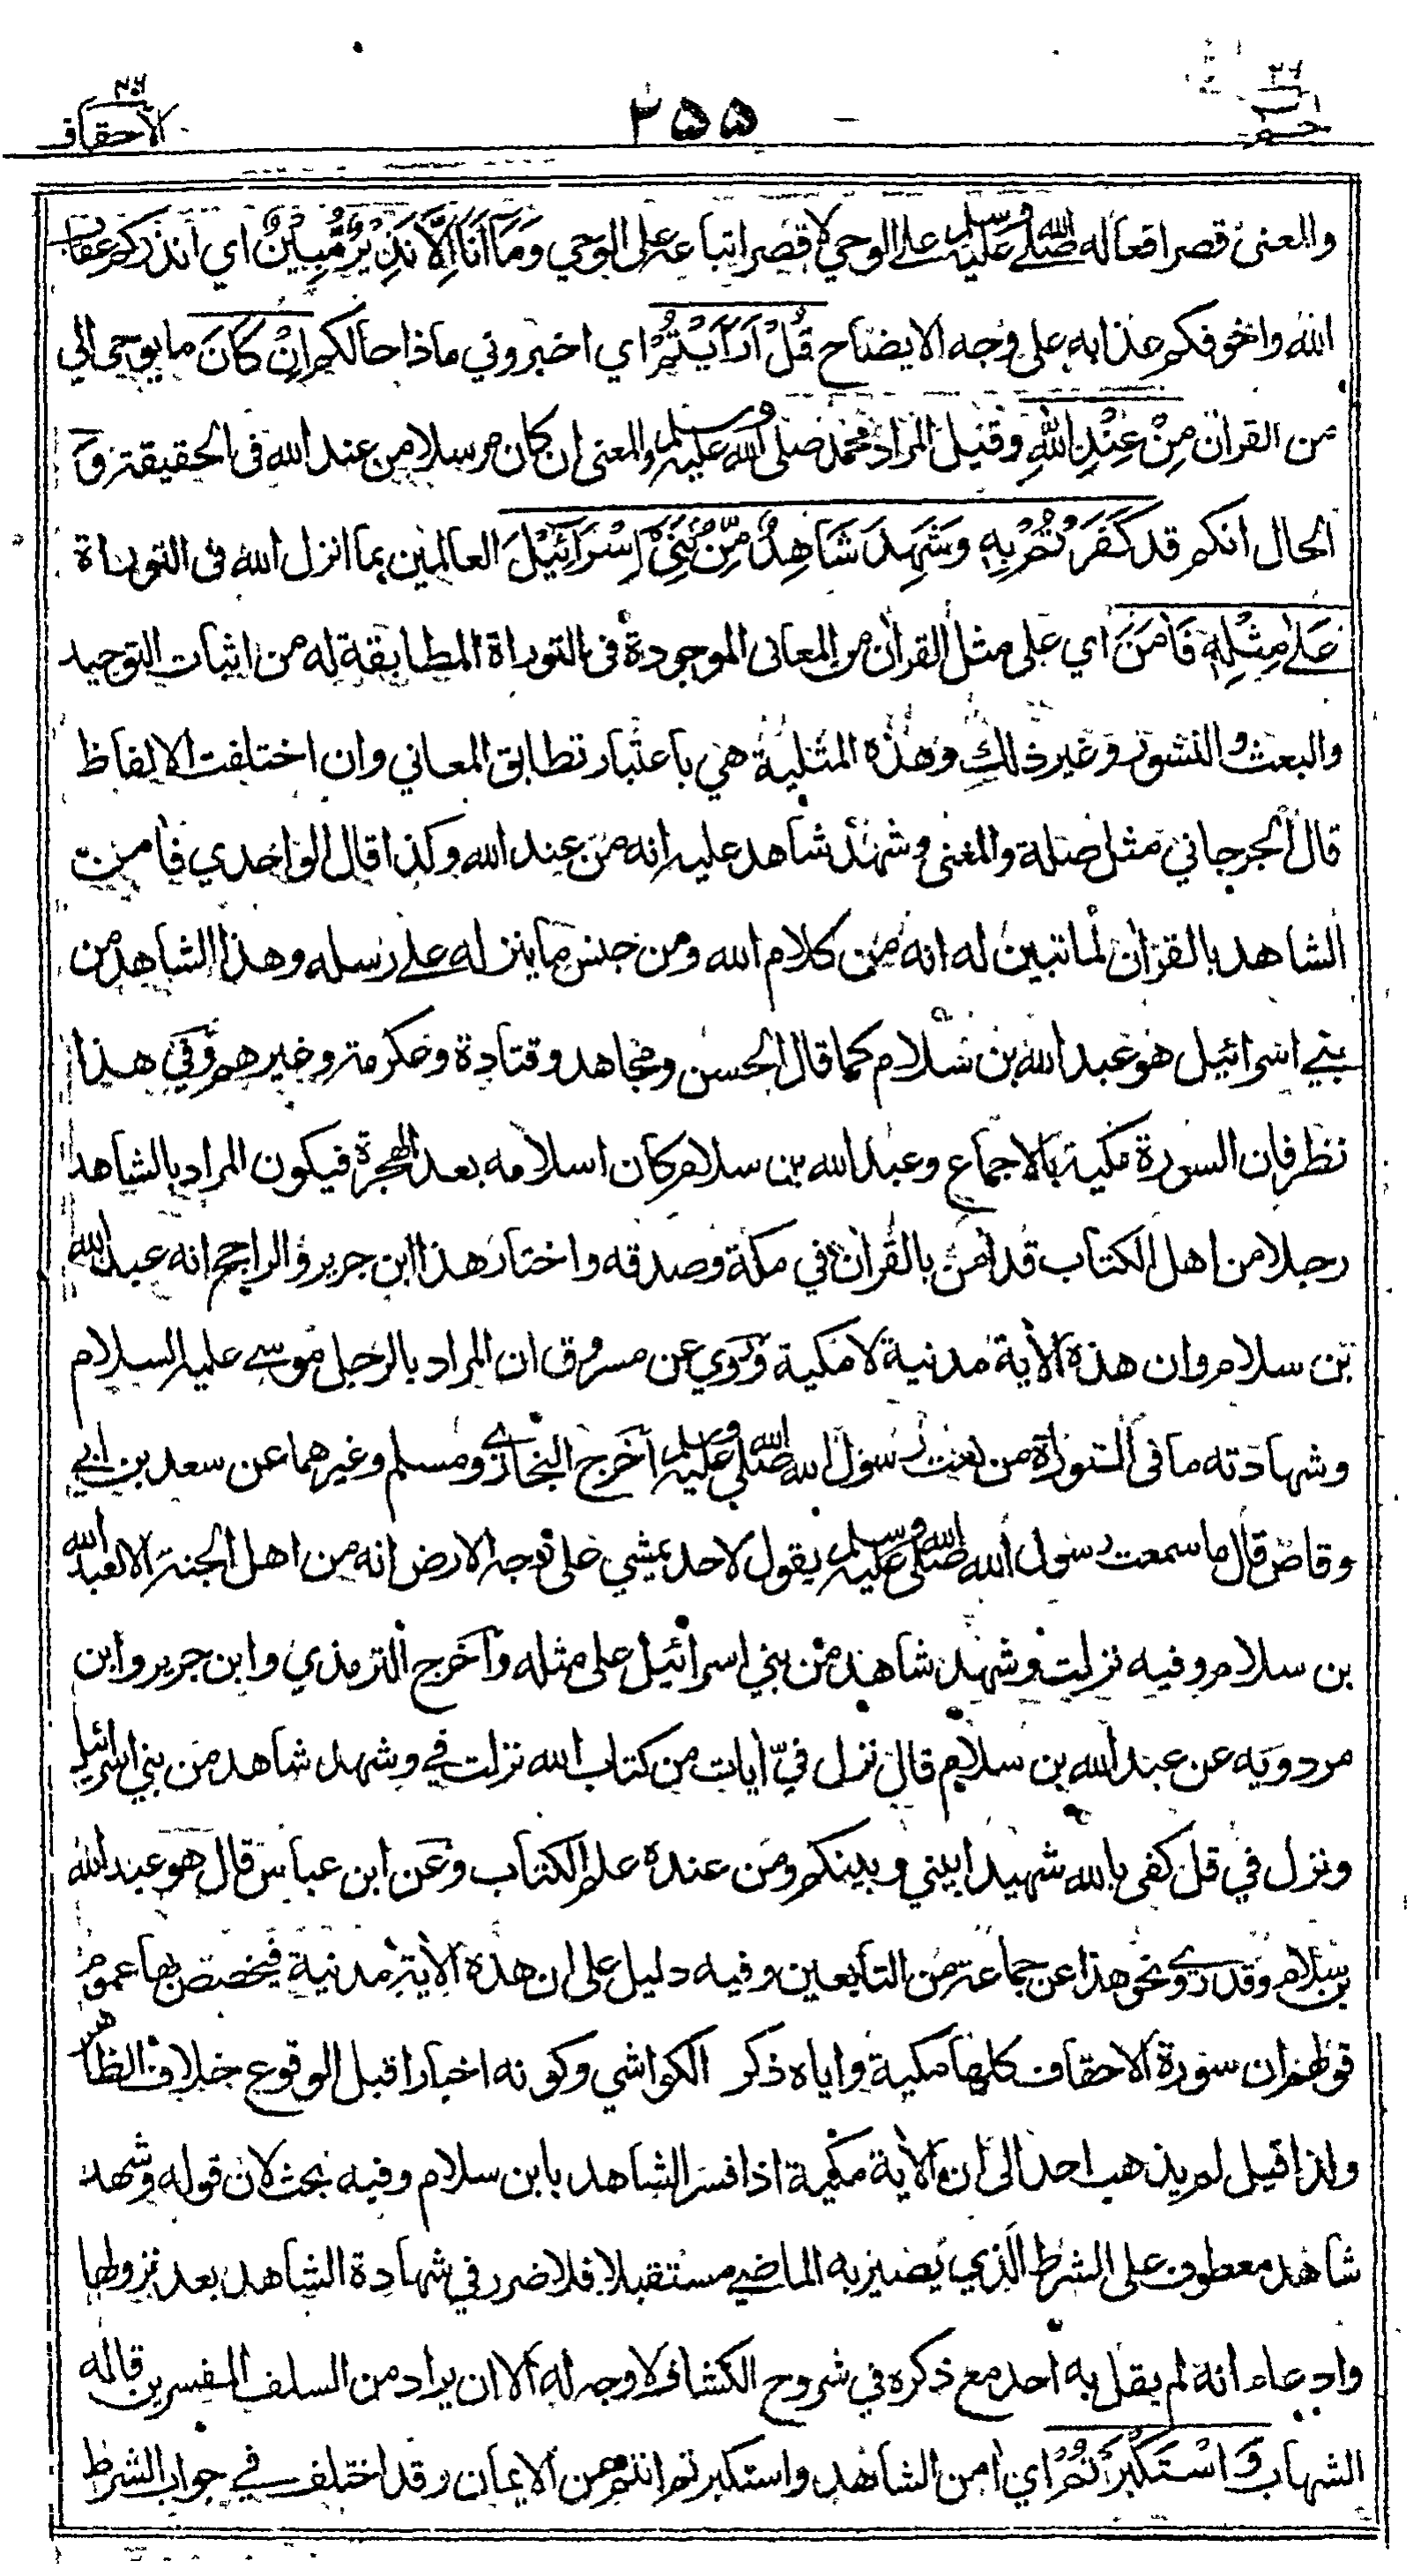 حٰم ٢٦
٢٥٥
الاحقاف ٤٦
والمعنى قصر افعاله صلى الله عليه وسلم على الوحي لا قصر اتباعه على الوحي وَمَآ اَنَا اِلَّا نَذِيْرٌ مُّبِيْنٌ اي انذركم عقاب
الله واخوفكم عذابه على وجه الايضاح قُلْ اَرَاَيْتُمْ اي اخبروني ماذا حالكم اِنْ كَانَ ما يوحى الي
من القرآن مِنْ عِنْدِ اللّٰهِ وقيل المراد محمد صلى الله عليه وسلم والمعنى ان كان مرسلا من عند الله فى الحقيقة وَ
الحال انكم قد كَفَرْتُمْ بِهٖ وَشَهِدَ شَاهِدٌ مِّنْ بَنِيْٓ اِسْرَآئِيْلَ العالمين بما انزل الله فى التوراة
عَلٰى مِثْلِهٖ فَاٰمَنَ اي على مثل القرآن من المعانى الموجودة فى التوراة المطابقة له من اثبات التوحيد
والبعث والنشور وغير ذلك وهذه المثلية هي باعتبار تطابق المعاني وان اختلفت الالفاظ
قال الجرجاني مثل صلة والمعنى وشهد شاهد عليه انه من عند الله وكذا قال الواحدي فآمن
الشاهد بالقرآن لما تبين له انه من كلام الله ومن جنس ما ينزله على رسله وهذا الشاهد من
بني اسرائيل هو عبد الله بن سلام كما قال الحسن ومجاهد وقتادة وعكرمة وغيرهم وفي هذا
نظر فان السورة مكية بالاجماع وعبد الله بن سلام كان اسلامه بعد الهجرة فيكون المراد بالشاهد
رجلا من اهل الكتاب قد آمن بالقرآن في مكة وصدقه واختار هذا ابن جرير والراجح انه عبد الله
بن سلام وان هذه الآية مدنية لا مكية وروي عن مسروق ان المراد بالرجل موسى عليه السلام
وشهادته ما فى التوراة من نعت رسول الله صلى الله عليه وسلم اخرج البخاري ومسلم وغيرهما عن سعد بن ابي
وقاص قال ما سمعت رسول الله صلى الله عليه وسلم يقول لاحد يمشي على وجه الارض انه من اهل الجنة الا لعبد الله
بن سلام وفيه نزلت وشهد شاهد من بني اسرائيل على مثله وآخرج الترمذي وابن جرير وابن
مردويه عن عبد الله بن سلام قال نزل فيّ آيات من كتاب الله نزلت في وشهد شاهد من بني اسرائيل
ونزل في قل كفى بالله شهيدا بيني وبينكم ومن عنده علم الكتاب وعن ابن عباس قال هو عبد الله
بن سلام وقد روي نحو هذا عن جماعة من التابعين وفيه دليل على ان هذه الآية مدنية فيخصص بها عموم
قولهم ان سورة الاحقاف كلها مكية واياه ذكر الكواشي وكونه اخبارا قبل الوقوع خلاف الظاهر
ولذا قيل لم يذهب احد الى ان الآية مكية اذا فسر الشاهد بابن سلام وفيه بحث لان قوله وشهد
شاهد معطوف على الشرط الذي يصير به الماضي مستقبلا فلا ضرر في شهادة الشاهد بعد نزولها
وادعاء انه لم يقل به احد مع ذكره في شروح الكشاف لا وجه له الا ان يراد من السلف المفسرين قاله
الشهاب وَاسْتَكْبَرْتُمْ اي آمن الشاهد واستكبرتم انتم عن الايمان وقد اختلف في جواب الشرط